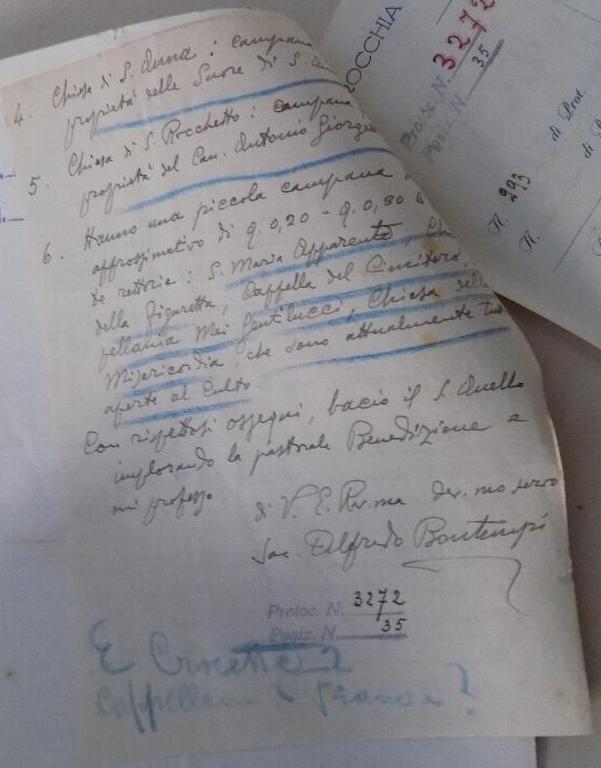 4. Chiesa di S. Anna: campana
proprietà delle Suore di S.
5. Chiesa di S. Rocchetto: campana
proprietà del Can. Antonio Giorgi
6. Hanno una piccola campana
approssimativo di q. 0,20 - q. 0,30
te rettoria: S. Maria Apparente,
della Figuretta, Cappella del Cimitero,
pellania Mei Gentilucci, Chiesa della
Misericordia, che sono attualmente
aperte al culto.
Con rispettosi ossequi, bacio il S. Anello
implorando la pastorale Benedizione e
mi professo
di V. E. Rev.ma dev.mo servo
Sac. Alfredo Bontempi
Protoc. N. 3272
Posiz. N. 35
E Crocette?
Cappella
ROCCHIA
Protoc. N. 3272
Posiz. N. 35
N. 293 di Prot.
N. di P